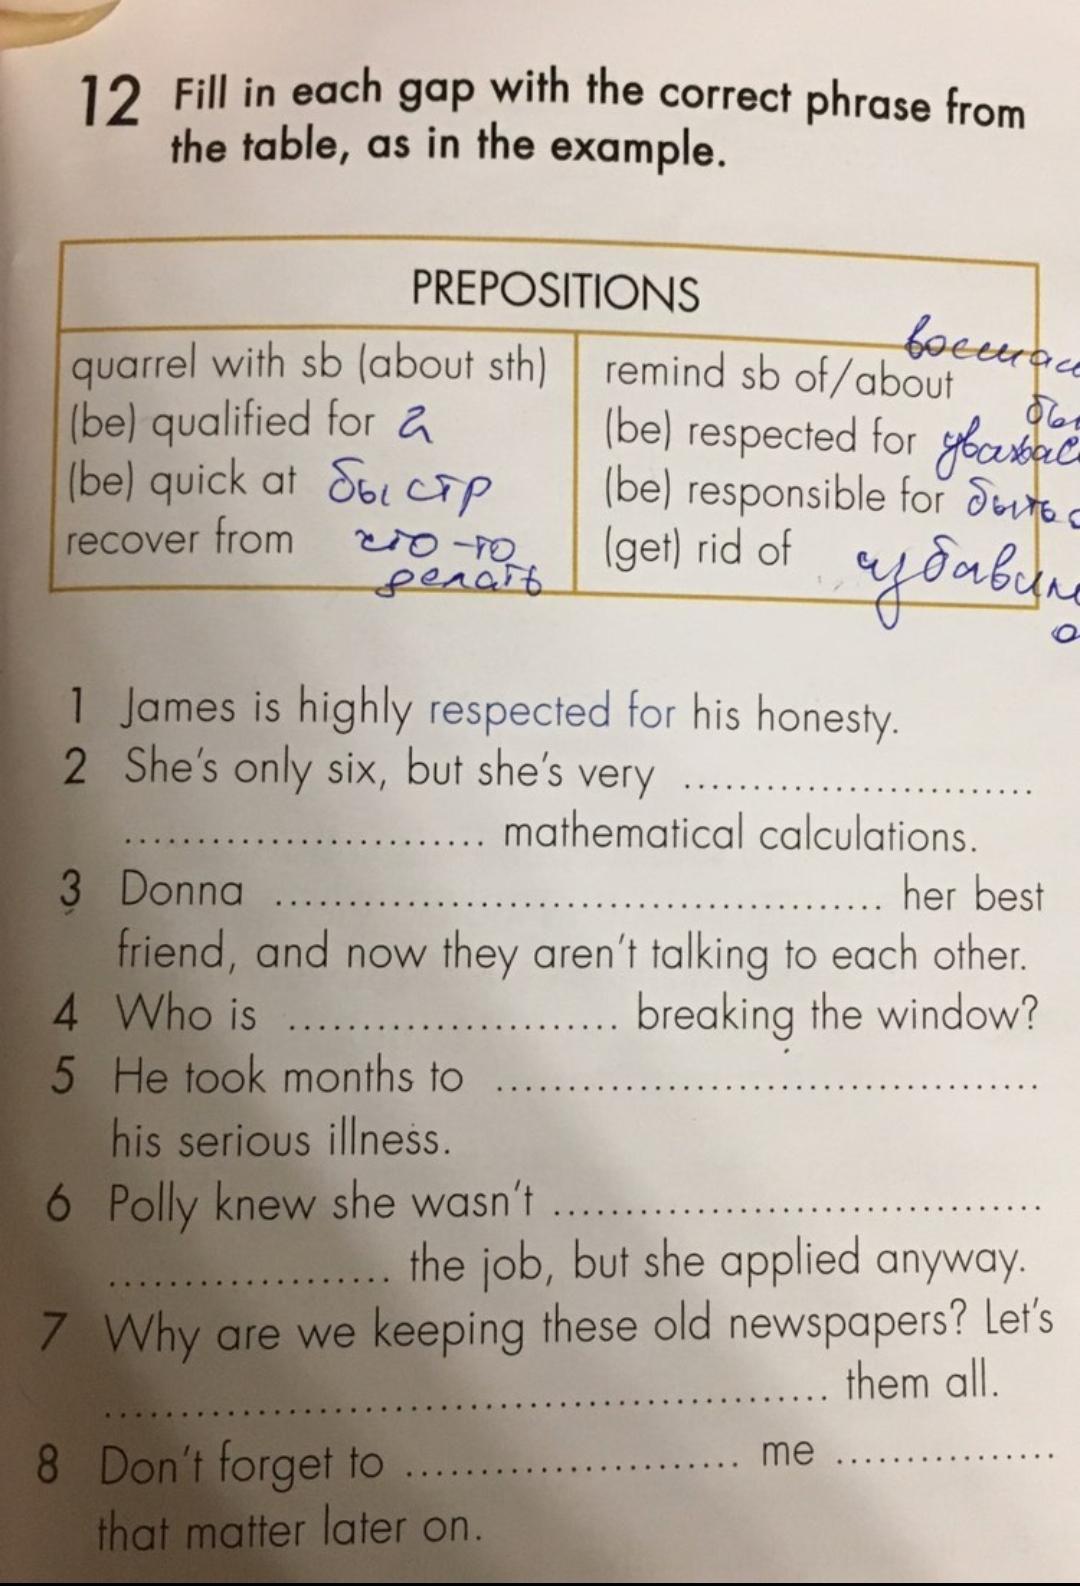 12 Fill in each gap with the correct phrase from
the table, as in the example.
PREPOSITIONS
quarrel with sb (about sth)
(be) qualified for
(be) quick at быстр
recover from что-то
делать
remind sb of/about
(be) respected for
(be) responsible for быть
(get) rid of
1 James is highly respected for his honesty.
2 She's only six, but she's very ..........................
.......................... mathematical calculations.
3 Donna .......................................... her best
friend, and now they aren't talking to each other.
4 Who is ....................... breaking the window?
5 He took months to ......................................
his serious illness.
6 Polly knew she wasn't ...................................
.................... the job, but she applied anyway.
7 Why are we keeping these old newspapers? Let's
.................................................. them all.
8 Don't forget to ........................ me ................
that matter later on.